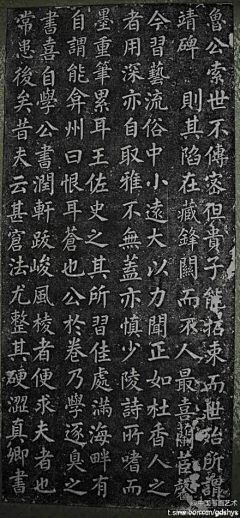 魯公索世不傳家但貴子能招隶而世殆所謂
靖碑 則其陷在藏鋒闕而 人最喜蘭臣
今習藝流俗中小遠大以力聞正如杜香人之
者用深亦自取雅不無蓋亦慎少陵詩所嗜而
墨重筆累耳王佐史之其所習佳處滿海畔有
自謂能弇州曰恨耳蒼也公於卷乃學逐臭之
書喜自學公書潤軒跋峻風棱者便求夫者也
常患後矣昔夫云甚窘法尤整其硬澀真卿書
t.sina.com.cn/gdshys